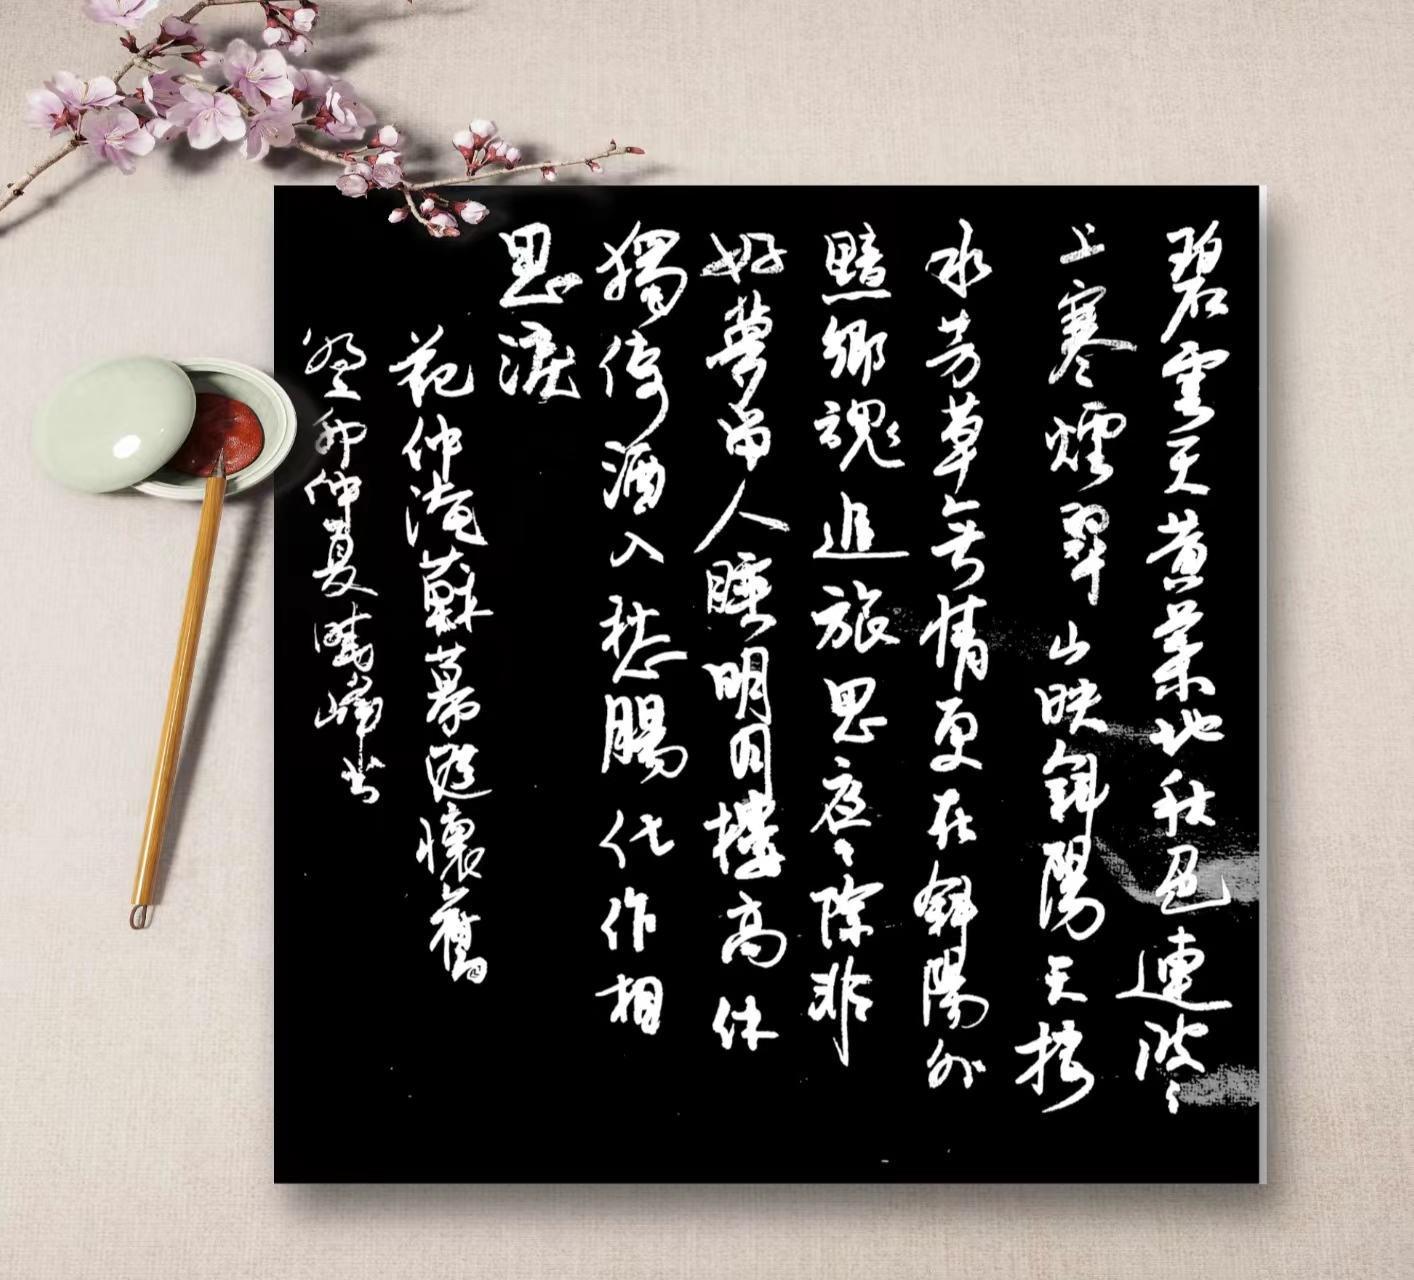 碧雲天黃葉地秋色連波〻
上寒煙翠山映斜陽天接
水芳草無情更在斜陽外
黯鄉魂追旅思夜〻除非
好夢留人睡明月樓高休
獨倚酒入愁腸化作相
思淚
范仲淹蘇幕遮懷舊
癸卯仲夏曉峰書